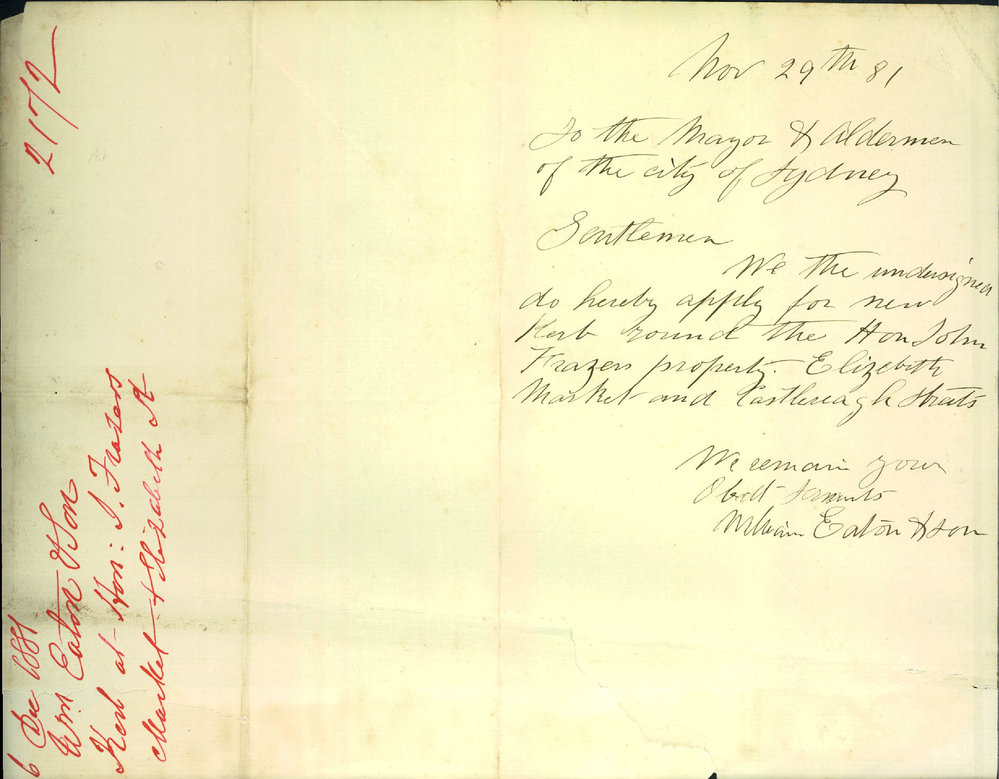 Nov 29th 81
To the Mayor & Aldermen
of the city of Sydney
Gentlemen
We the undersigned
do hereby apply for new
Kerb round the Hon John
Frazers property. Elizabeth
Market and Castlereagh Streets
We remain your
Obdt Servants
William Eaton & Son
2172
6 Dec 1881
Wm Eaton & Son
Kerb at Hon: J. Frazers
Market & Elizabeth St